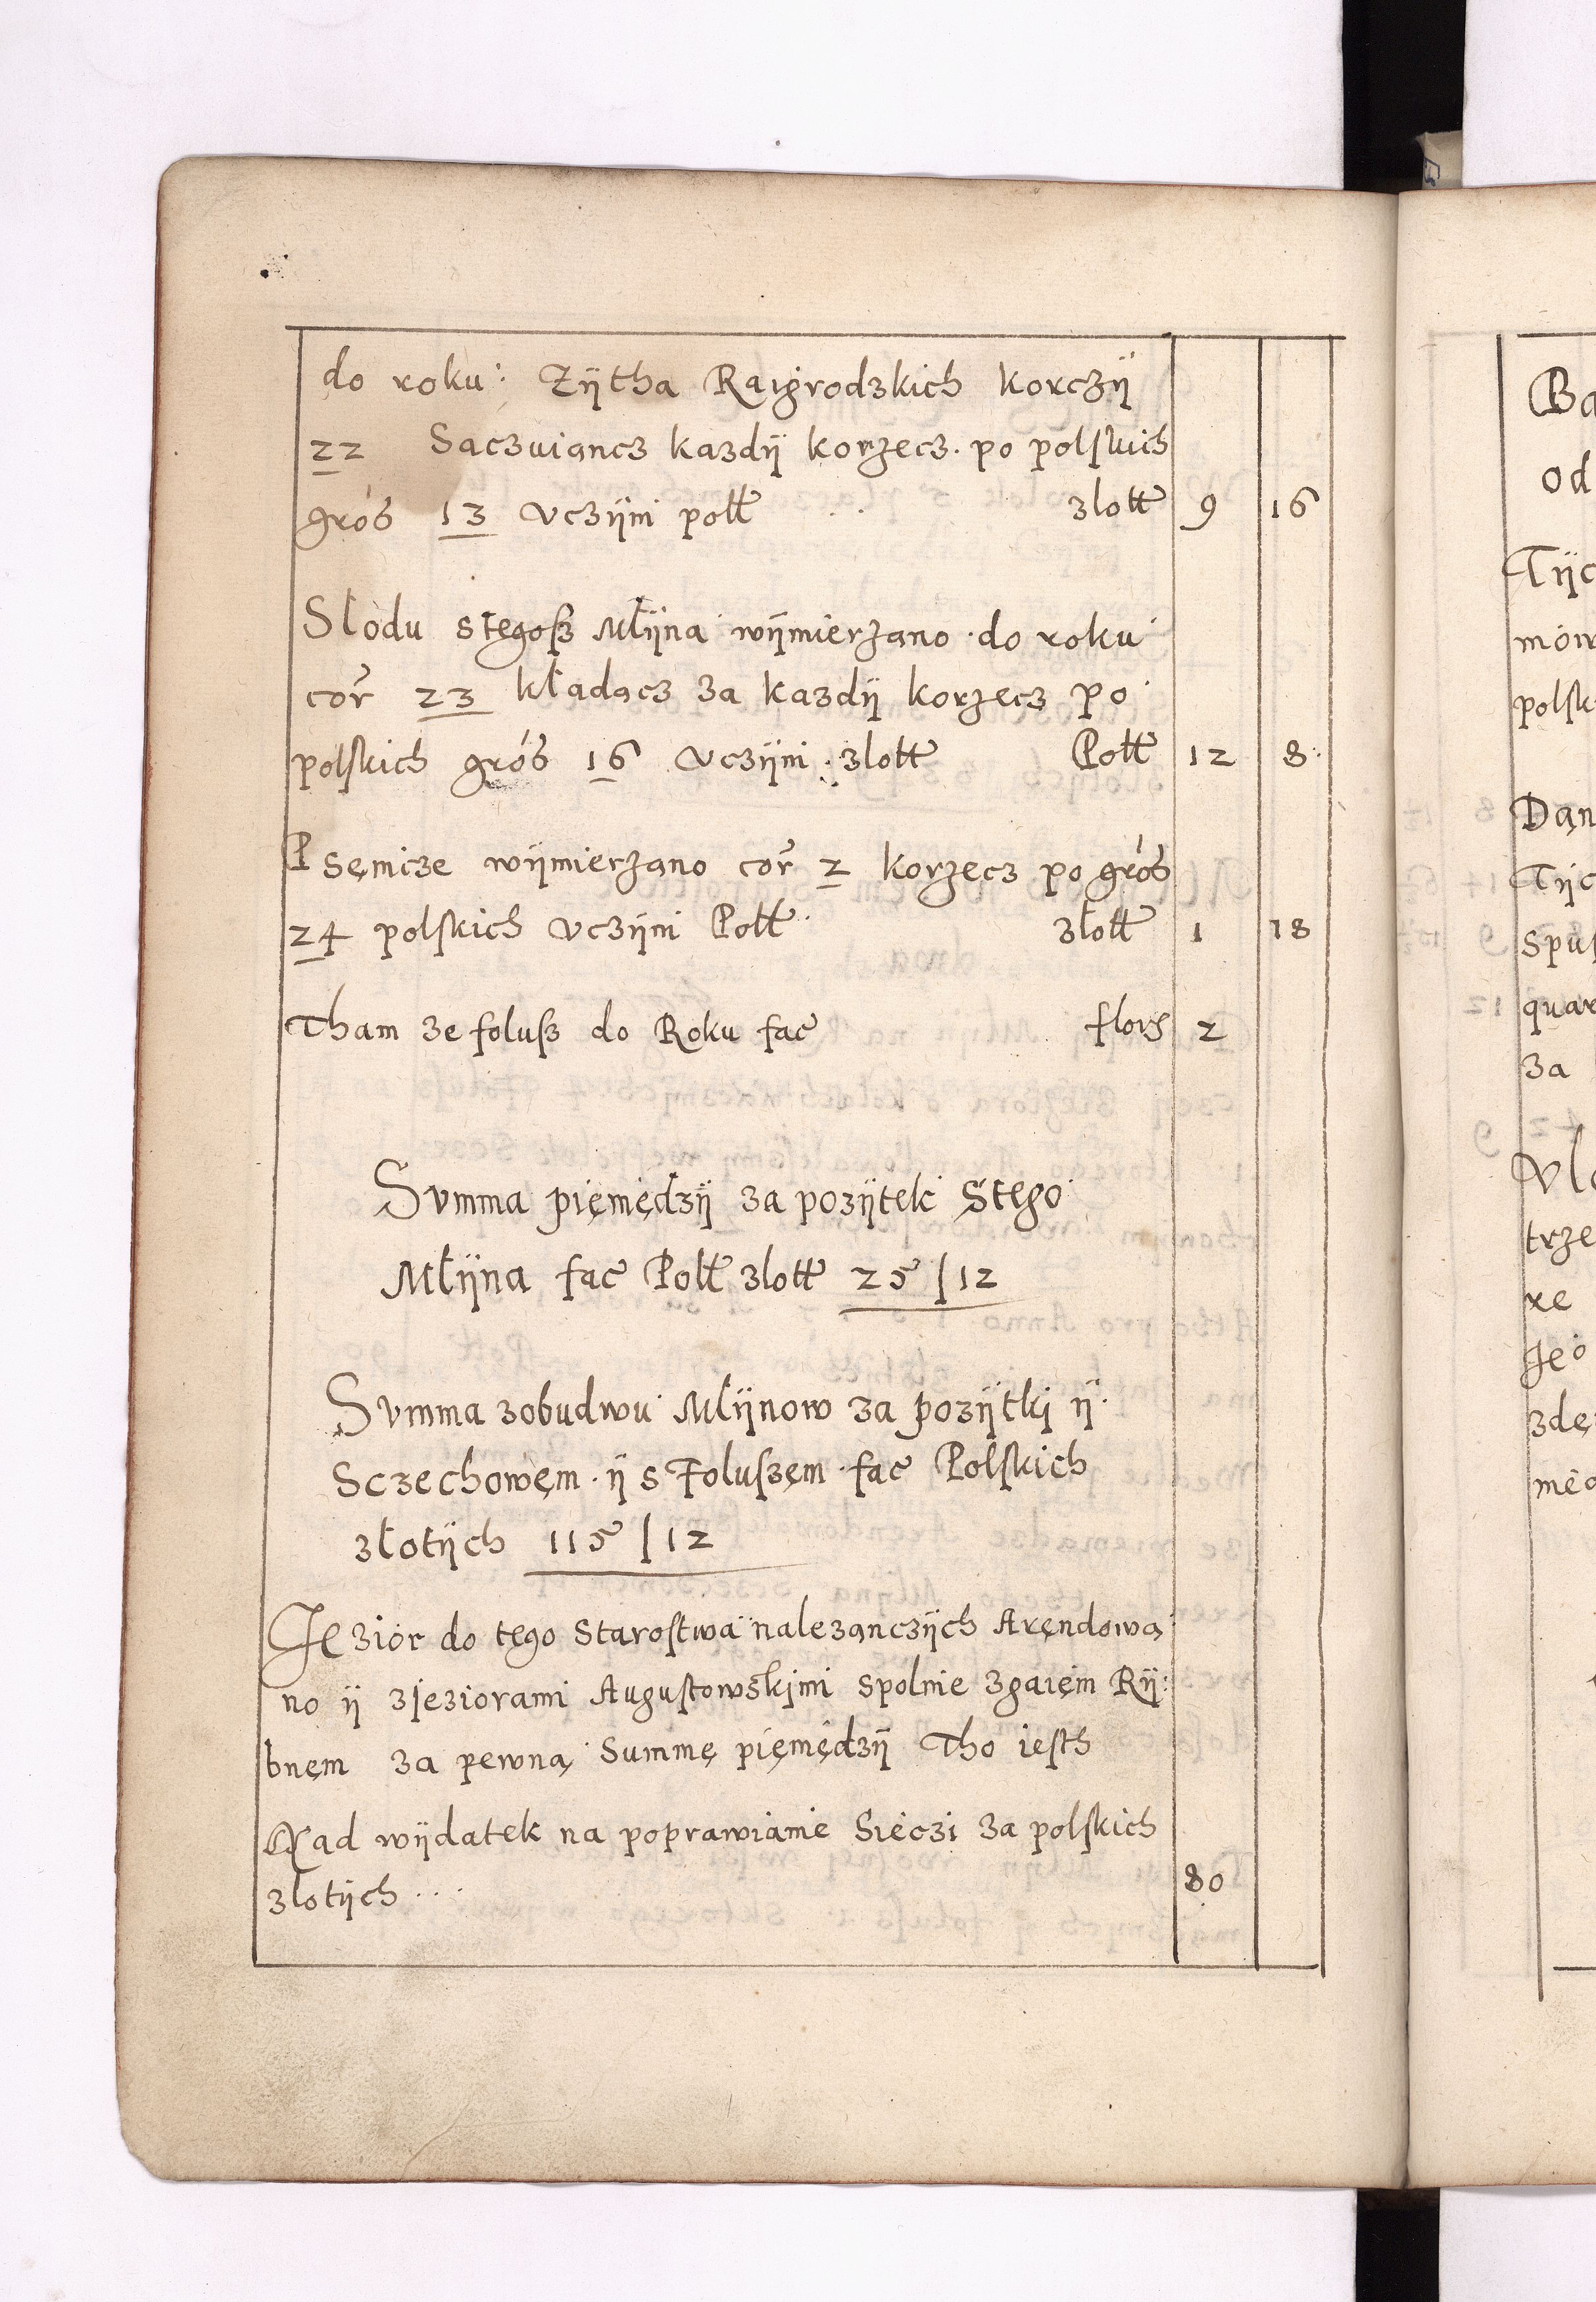 do roku: Zÿtha Raigrodzkich korczÿ
22 Saczuiancz kazdÿ korzecz. po polskich
gros 13 vczÿni poll zlott 9 16
Słodu stęgosz Młÿna wÿmierzano do roku
cor 23 kładącz za kazdÿ korzecz po
polskich gros 16 vczÿni zlott Poll 12 8
Psęnicze wÿmierzano cor 2 korzecz po gros
24 polskich vczÿni Poll złott 1 18
Tham ze folusz do Roku fac flors 2
Svmma pięniędzÿ za pozÿtek stego
Młÿna fac Poll zlott 25 | 12
Svmma zobudwu Młÿnow za pozÿtki ÿ
Sczechowęm ÿ s Foluszęm fac Polskich
złotÿch 115 | 12
Jęzior do tęgo Starostwa nalezanczÿch Aręndowa
no ÿ zjeziorami Augustowskimi spolnie zgaięm Rÿ:
bnęm za pewną Summę pięniędzÿ Tho iesth
Nad wÿdatek na poprawianie Sieczi za polskich
zlotÿch ... 80
Ba
od
Tÿc
mow
polsk
Dąn
Tÿc
spus
quar
za
Vlo
trze
re
Jeo
zdę